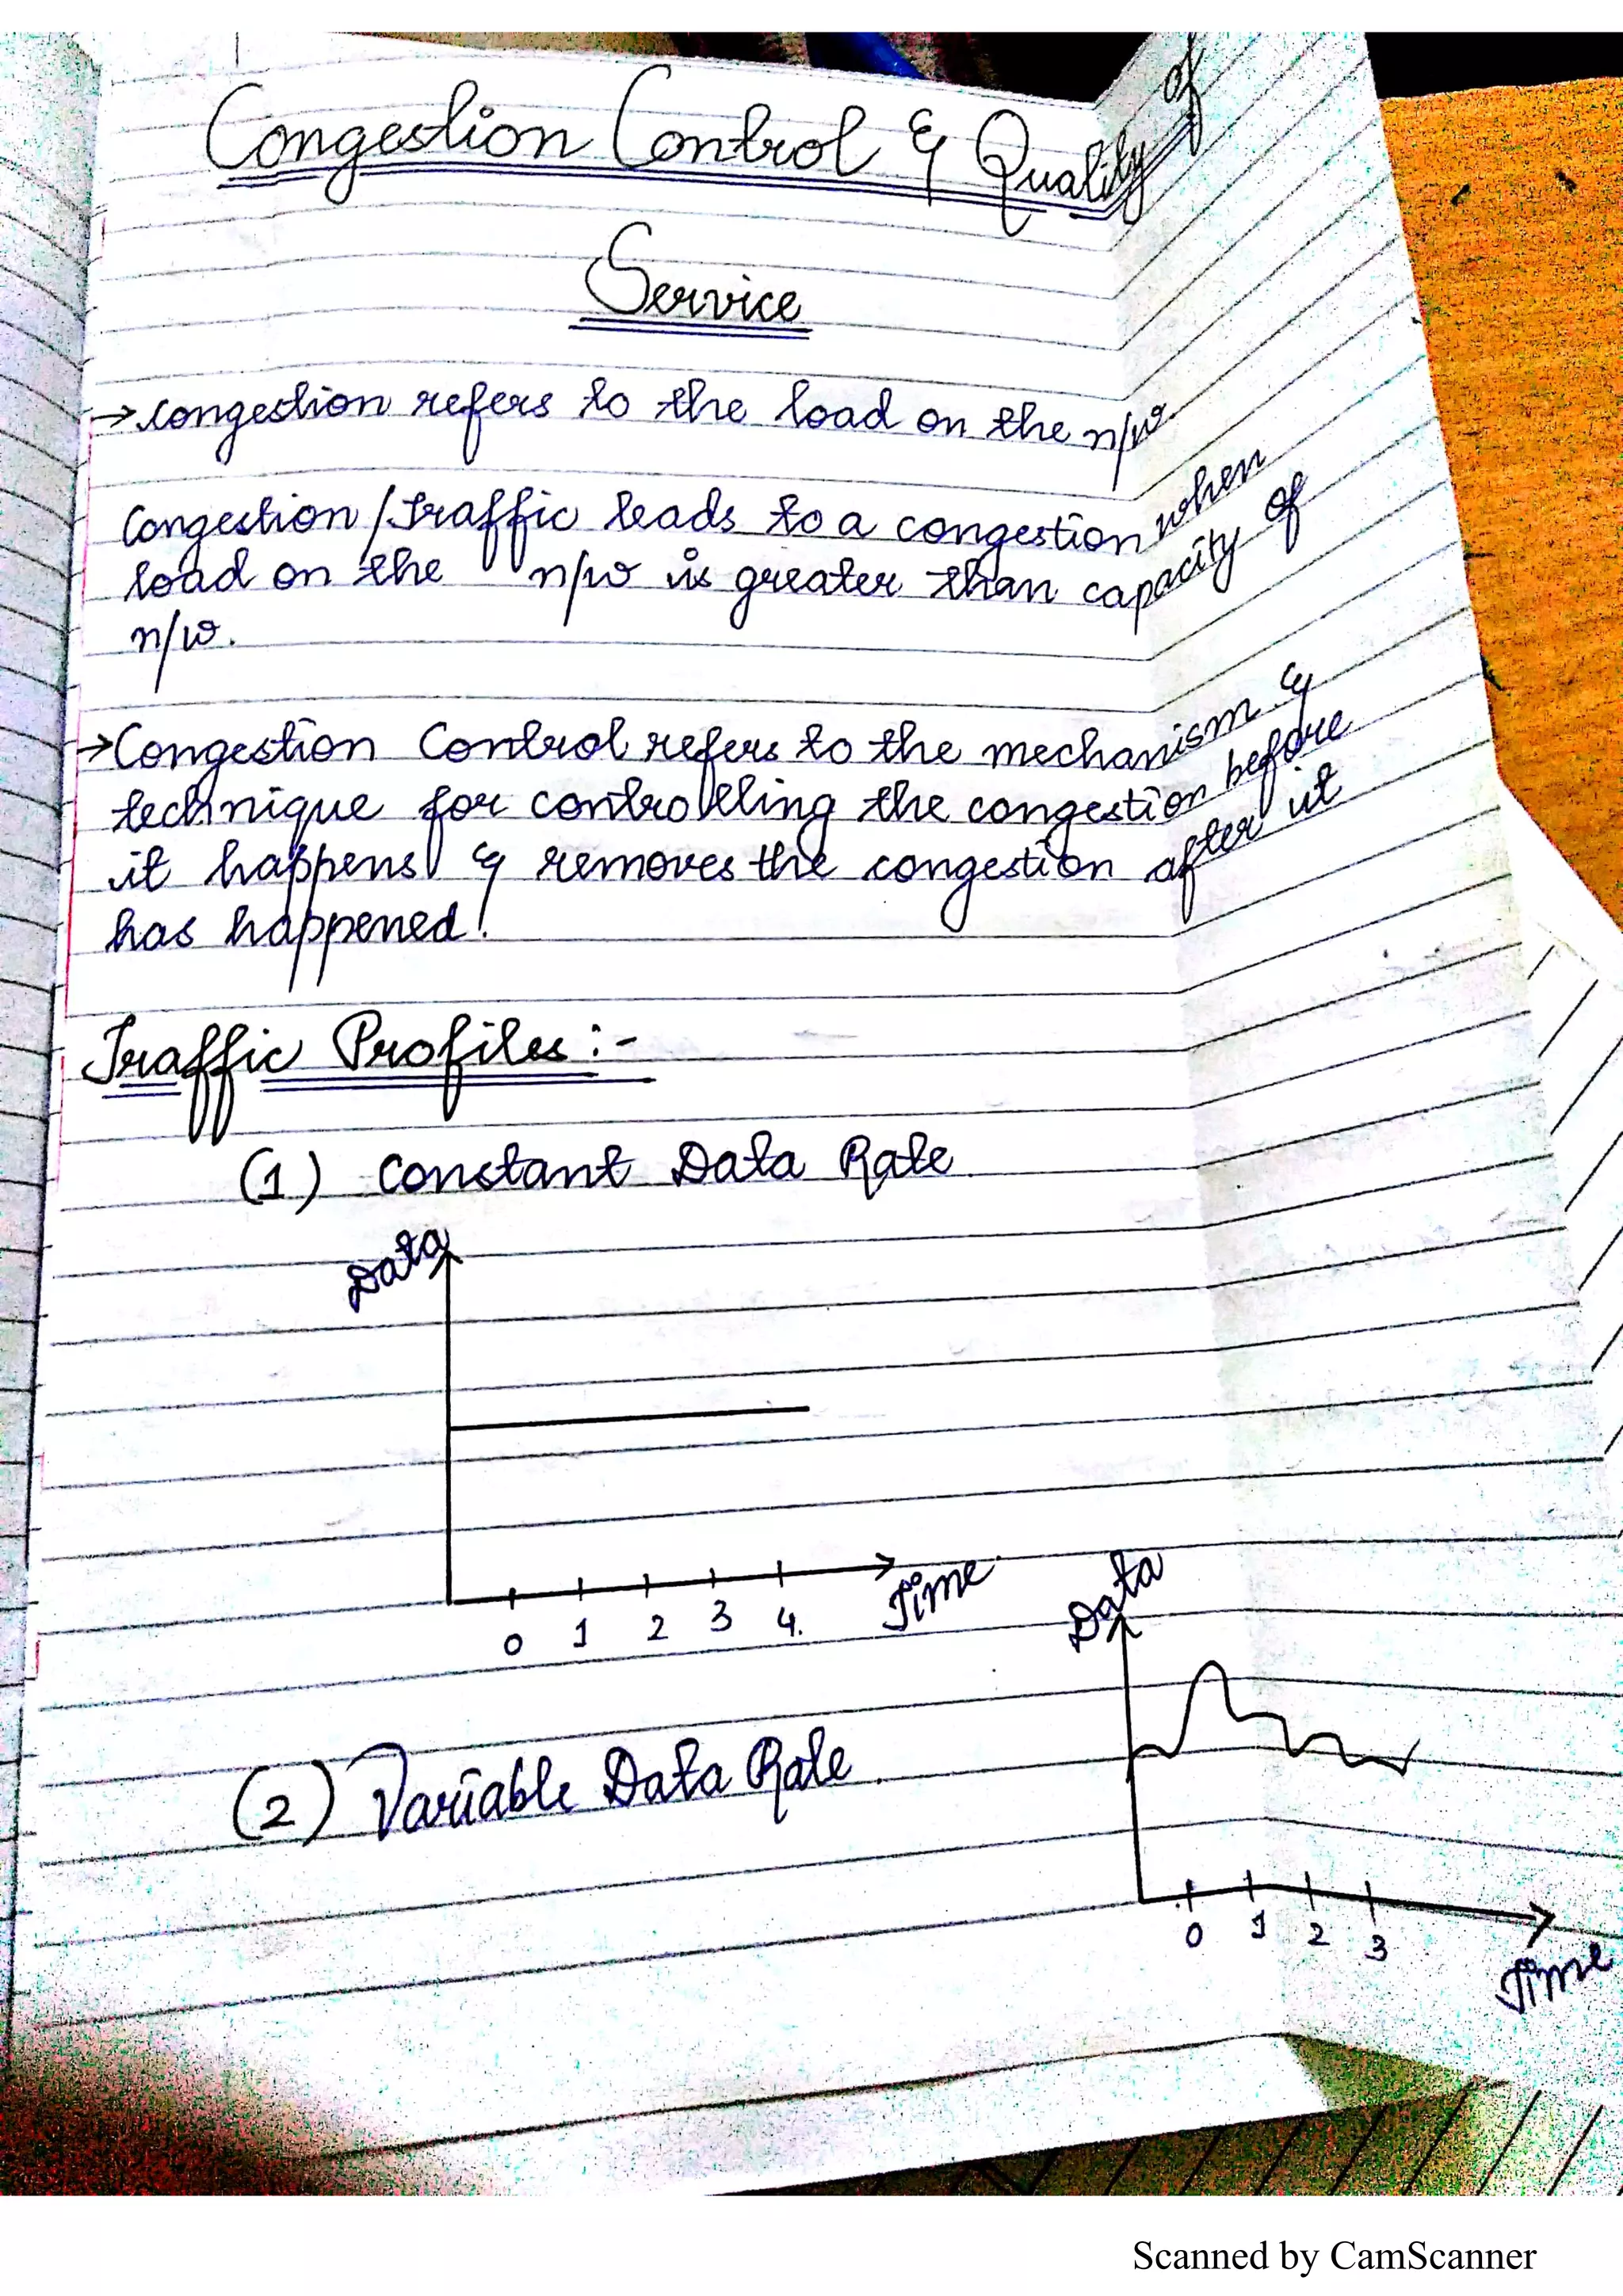 Congestion Control & Quality of
Service
→ congestion refers to the load on the n/w.
Congestion/Traffic leads to a congestion when
load on the n/w is greater than capacity of
n/w.
→ Congestion Control refers to the mechanism &
technique for controlling the congestion before
it happens & removes the congestion after it
has happened.
Traffic Profiles:-
(1) Constant Data Rate
Data
0 1 2 3 4.
Time
(2) Variable Data Rate.
Data
0 1 2 3
Time
Scanned by CamScanner